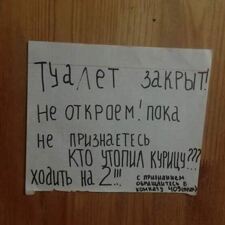 ТУАЛЕТ ЗАКРЫТ!
не откроем! пока
не признаетесь
кто утопил курицу???
ходить на 2!!!
с признанием
обращайтесь в
комнату 409